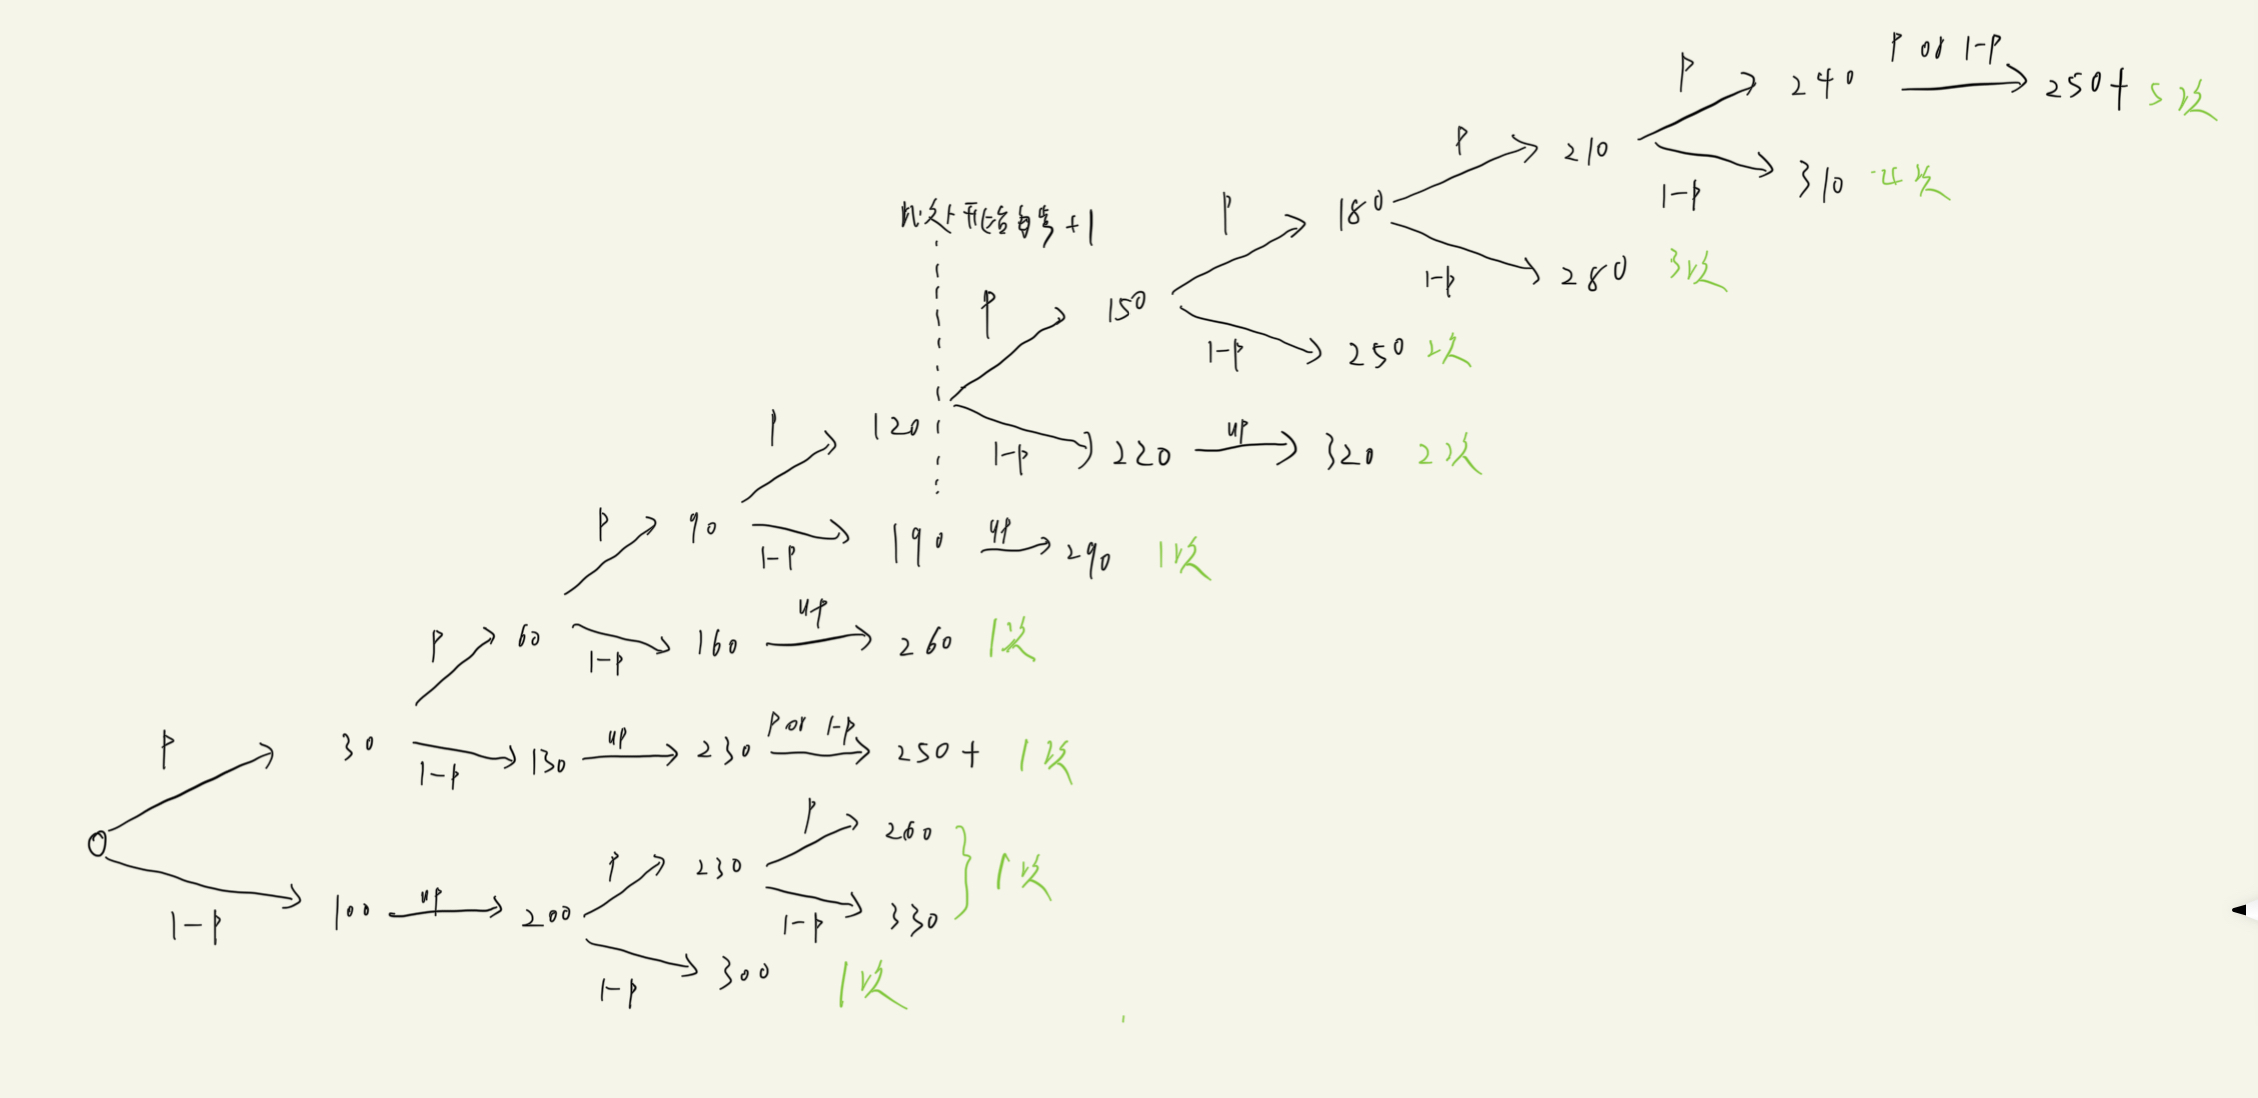 P or 1-P
P 240 250+ 5次
P 210 1-P 310 4次
此处开始自号+1
P 180 1-P 280 3次
P 150 1-P 250 2次
P 120 1-P 220 up 320 2次
P 90 1-P 190 up 290 1次
P 60 1-P 160 up 260 1次
P 30 1-P 130 up 230 P or 1-P 250+ 1次
0
P 260
1-P 100 up 200 P 230 1次
1-P 330
1-P 300 1次